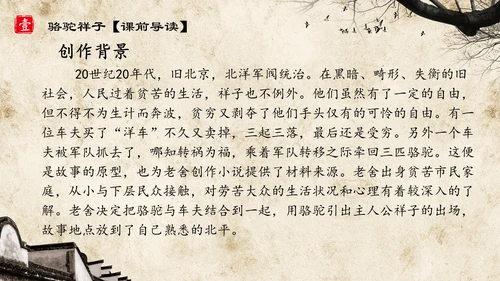 壹 骆驼祥子【课前导读】
创作背景
20世纪20年代，旧北京，北洋军阀统治。在黑暗、畸形、失衡的旧
社会，人民过着贫苦的生活，祥子也不例外。他们虽然有了一定的自由，
但不得不为生计而奔波，贫穷又剥夺了他们手头仅有的可怜的自由。有一
位车夫买了“洋车”不久又卖掉，三起三落，最后还是受穷。另外一个车
夫被军队抓去了，哪知转祸为福，乘着军队转移之际牵回三匹骆驼。这便
是故事的原型，也为老舍创作小说提供了材料来源。老舍出身贫苦市民家
庭，从小与下层民众接触，对劳苦大众的生活状况和心理有着较深入的了
解。老舍决定把骆驼与车夫结合到一起，用骆驼引出主人公祥子的出场，
故事地点放到了自己熟悉的北平。